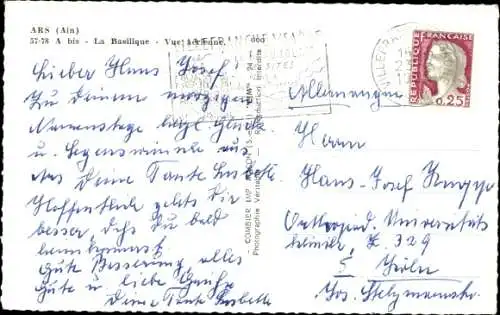 ARS (Ain)
57-78 A bis - La Basilique - Vue aérienne.
Lieber Hans Josef!
Zu Deinem morgigen
Namenstage herzl. Glück
u. Segenswünsche aus
Ars Deine Tante Lisbeth.
Hoffentlich geht's Dir
besser, daß Du bald
heimkommst.
Gute Besserung, alles
Gute u. liebe Grüße
Deine Tante Lisbeth
COMBIER IMP. MACON
Photographie Véritable - Reproduction interdite
REPUBLIQUE FRANÇAISE
0,25
Allemagne
Herrn
Hans-Josef
Orthopäd. Universitäts
klinik, Z. 329
5 Köln
Jos. Stelzmannstr.